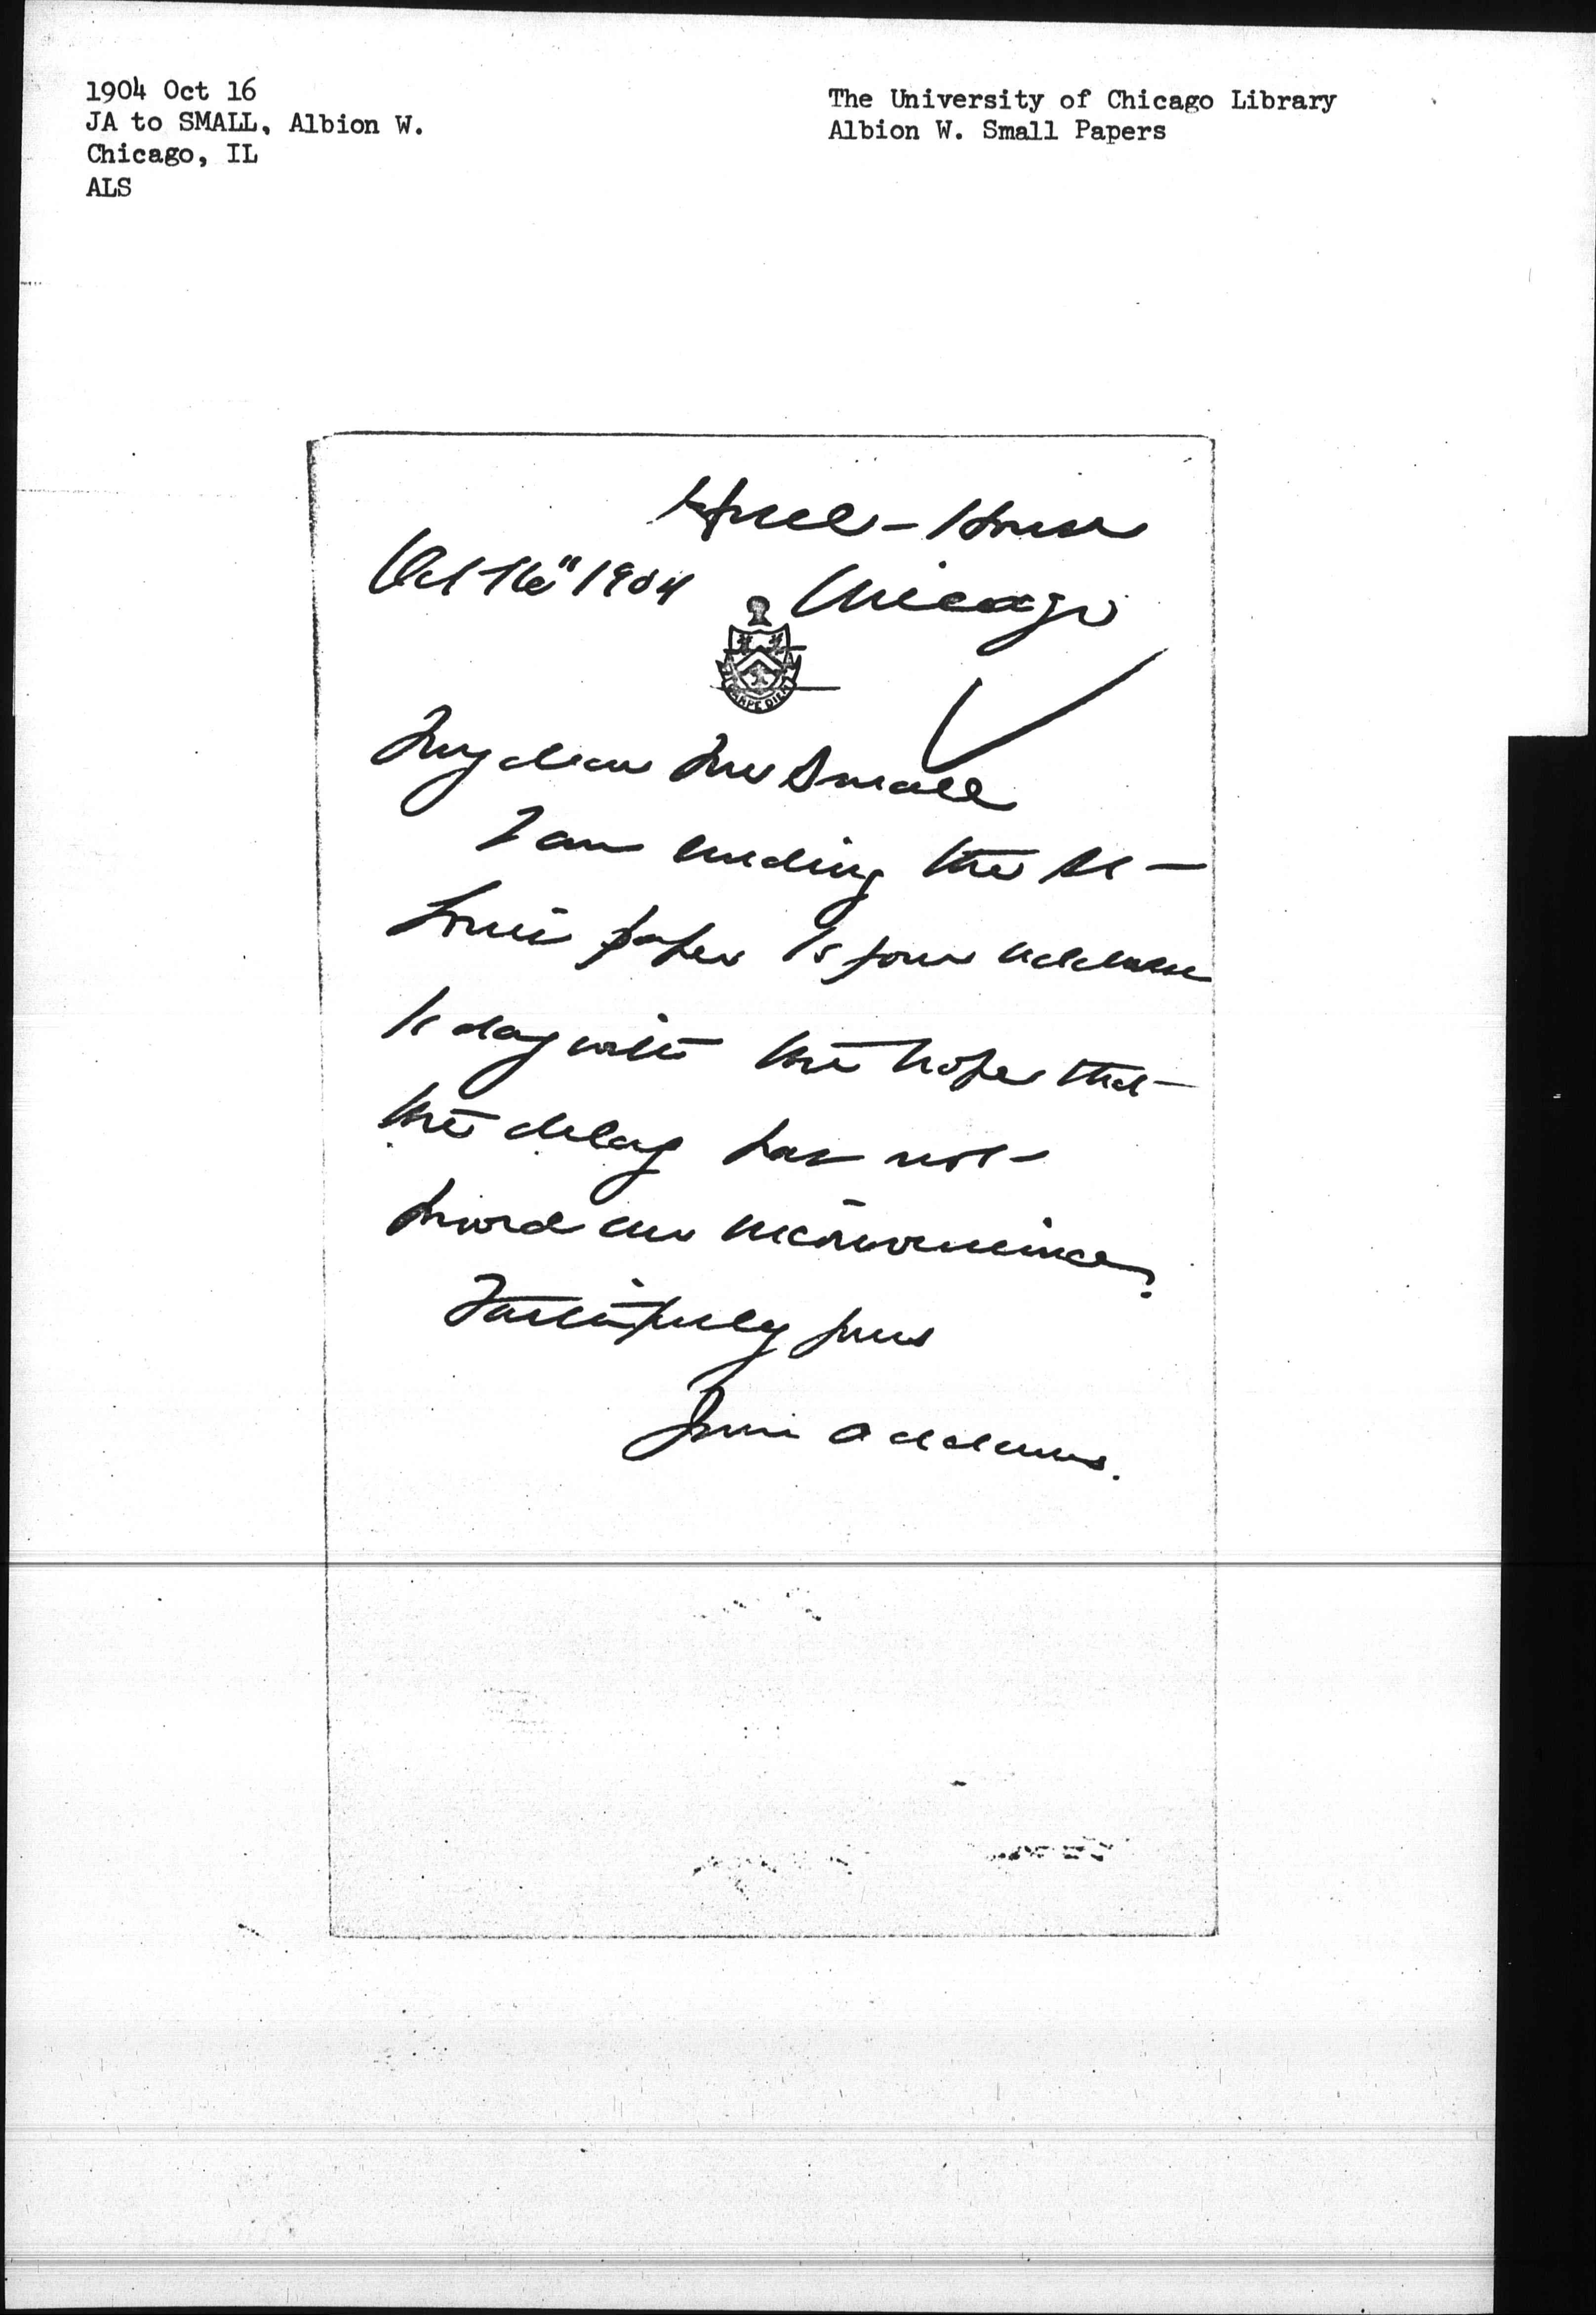 1904 Oct 16
JA to SMALL, Albion W.
Chicago, IL
ALS
The University of Chicago Library
Albion W. Small Papers
Hull-House
Oct 16" 1904 Chicago
CARPE DIEM
My dear Mr Small
I am sending the St
Louis paper to your address
to day with the hope that
the delay has not
proved an inconvenience.
Faithfully yours
Jane Addams.